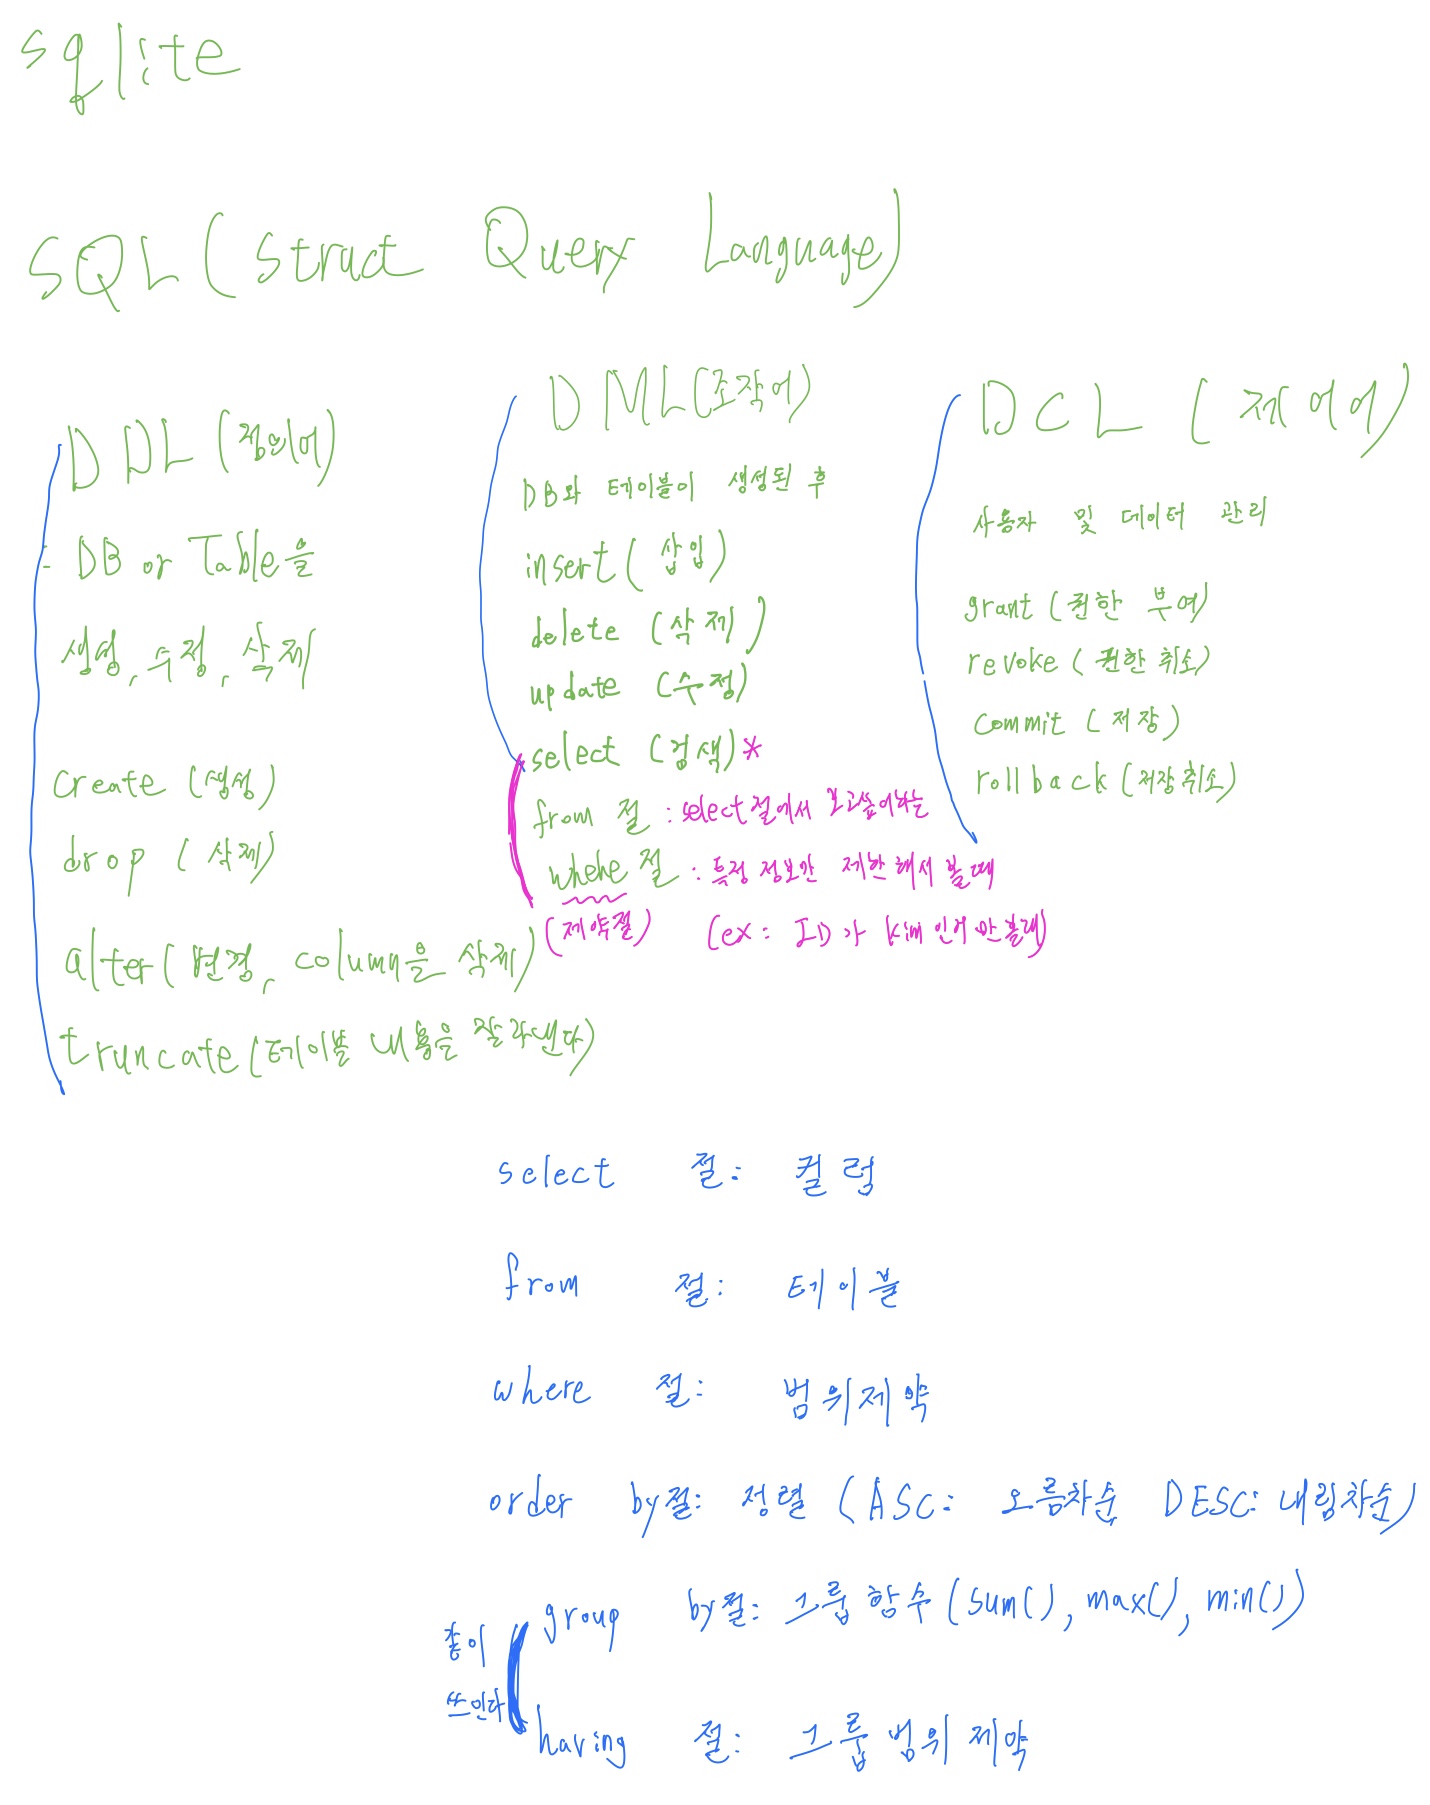 sqlite
SQL (struct Query Language)
DDL (정의어)
- DB or Table을
생성, 수정, 삭제
create (생성)
drop (삭제)
alter (변경, column을 삭제)
truncate (테이블 내용을 잘라낸다)
DML (조작어)
DB와 테이블이 생성된 후
insert (삽입)
delete (삭제)
update (수정)
select (검색)*
from 절 : select 절에서 보고싶어하는
whehe 절 : 특정 정보만 제한해서 볼때
(제약절) (ex: ID가 kim인거만 볼래)
DCL (제어어)
사용자 및 데이터 관리
grant (권한 부여)
revoke (권한 취소)
commit (저장)
rollback (저장취소)
select 절: 컬럼
from 절: 테이블
where 절: 범위제약
order by절: 정렬 (ASC: 오름차순 DESC: 내림차순)
group by절: 그룹 함수 (sum(), max(), min())
같이
쓰인다
having 절: 그룹 범위 제약